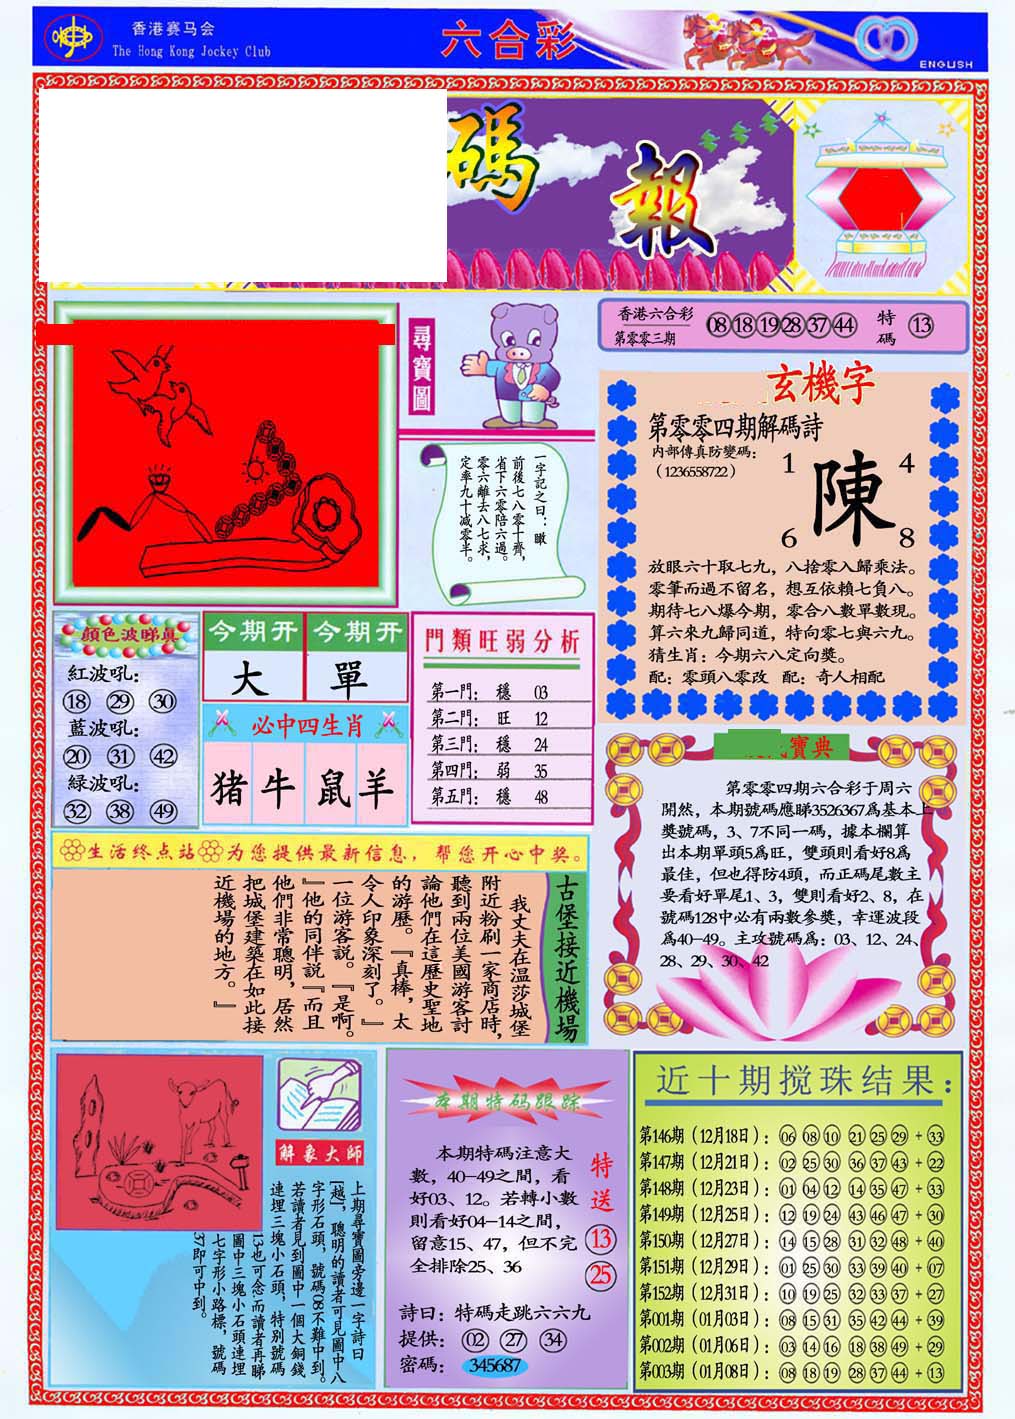 香港赛马会
The Hong Kong Jockey Club
六合彩
ENGLISH
碼
報
尋寶圖
香港六合彩
第零零三期
08 18 19 28 37 44
特碼
13
一字記之曰：瞰
前後七八零十齊，
省下六零陪六過。
零六離去八七求，
定率九十減零半。
玄機字
第零零四期解碼詩
内部傳真防變碼：
（1236558722）
1 4
陳
6 8
放眼六十取七九，八捨零入歸乘法。
零筆而過不留名，想互依賴七負八。
期待七八爆今期，零合八數單數現。
算六來九歸同道，特向零七與六九。
猜生肖：今期六八定向獎。
配：零頭八零改 配：奇人相配
顔色波睇真
紅波吼：
18 29 30
藍波吼：
20 31 42
緑波吼：
32 38 49
今期开 今期开
大 單
必中四生肖
猪 牛 鼠 羊
門類旺弱分析
第一門： 穩 03
第二門： 旺 12
第三門： 穩 24
第四門： 弱 35
第五門： 穩 48
寶典
第零零四期六合彩于周六
開然，本期號碼應睇3526367爲基本上
獎號碼，3、7不同一碼，據本欄算
出本期單頭5爲旺，雙頭則看好8爲
最佳，但也得防4頭，而正碼尾數主
要看好單尾1、3，雙則看好2、8，在
號碼128中必有兩數參獎，幸運波段
爲40—49。主攻號碼爲：03、12、24、
28、29、30、42
生活终点站 为您提供最新信息，帮您开心中奖。
古堡接近機場
我丈夫在温莎城堡
附近粉刷一家商店時，
聽到兩位美國游客討
論他們在這歷史聖地
的游歷。『真棒，太
令人印象深刻了。』
一位游客説。『是啊。
『他的同伴説『而且
他們非常聰明，居然
把城堡建築在如此接
近機場的地方。』
解象大師
上期尋寶圖旁邊一字詩曰
[越]，聰明的讀者可見圖中八
字形石頭，號碼08不難中到。
若讀者見到圖中一個大銅錢
連埋三塊小石頭，特别號碼
13也可念，而讀者再睇
圖中三塊小石頭連埋
七字形小路標，號碼
37即可中到。
本期特码跟踪
本期特码注意大
數，40—49之間，看
好03、12。若轉小數
則看好04—14之間，
留意15、47，但不完
全排除25、36
特送
13
25
詩曰：特碼走跳六六九
提供： 02 27 34
密碼： 345687
近十期搅珠结果：
第146期（12月18日）：06 08 10 21 25 29 + 33
第147期（12月21日）：02 25 30 36 37 43 + 22
第148期（12月23日）：01 04 12 14 35 47 + 33
第149期（12月25日）：12 19 24 43 46 47 + 30
第150期（12月27日）：14 15 28 31 32 48 + 40
第151期（12月29日）：01 25 30 33 39 40 + 07
第152期（12月31日）：10 19 25 32 33 37 + 27
第001期（01月03日）：08 15 31 35 42 44 + 39
第002期（01月06日）：03 14 16 18 38 49 + 29
第003期（01月08日）：08 18 19 28 37 44 + 13